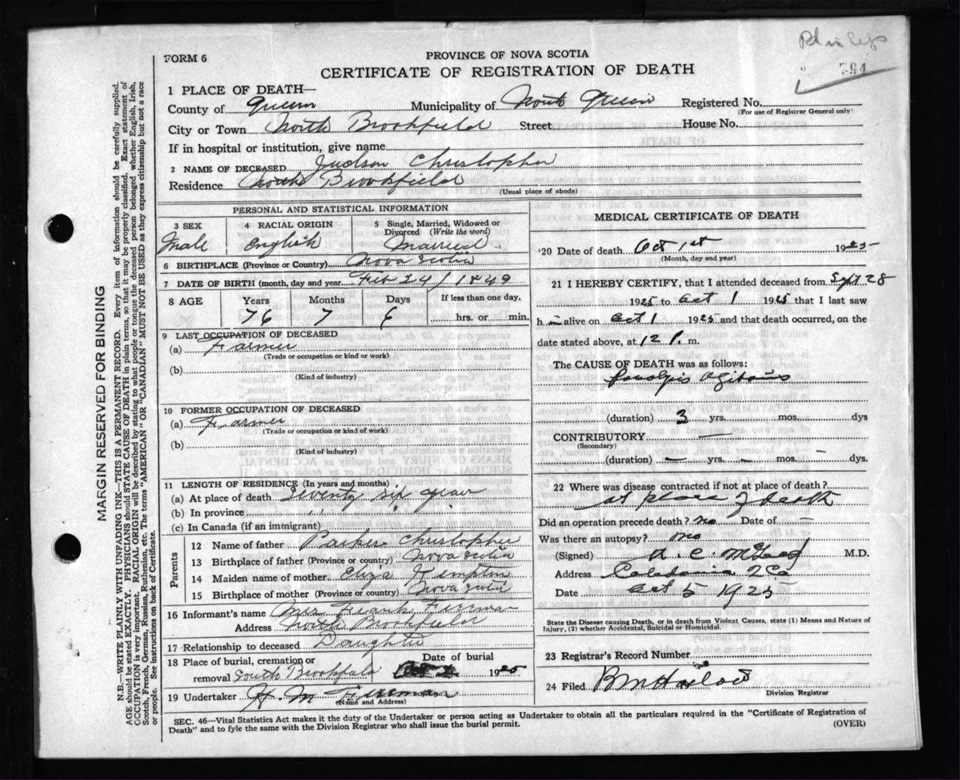 394
FORM 6
PROVINCE OF NOVA SCOTIA
CERTIFICATE OF REGISTRATION OF DEATH
1 PLACE OF DEATH—
County of Queens Municipality of North Queens Registered No.
(For use of Registrar General only)
City or Town North Brookfield Street House No.
If in hospital or institution, give name
2 NAME OF DECEASED Judson Christopher
Residence North Brookfield
(Usual place of abode)
PERSONAL AND STATISTICAL INFORMATION
3 SEX 4 RACIAL ORIGIN 5 Single, Married, Widowed or Divorced (Write the word)
Male English Married
6 BIRTHPLACE (Province or Country) Nova Scotia
7 DATE OF BIRTH (month, day and year) Feb 24 / 1849
8 AGE Years Months Days If less than one day,
76 7 6 hrs. or min.
9 LAST OCCUPATION OF DECEASED
(a) Farmer
(Trade or occupation or kind or work)
(b)
(Kind of industry)
10 FORMER OCCUPATION OF DECEASED
(a) Farmer
(Trade or occupation or kind or work)
(b)
(Kind of industry)
11 LENGTH OF RESIDENCE (In years and months)
(a) At place of death Seventy six years
(b) In province " " "
(c) In Canada (if an immigrant)
Parents
12 Name of father Parker Christopher
13 Birthplace of father (Province or country) Nova Scotia
14 Maiden name of mother Eliza Kempton
15 Birthplace of mother (Province or country) Nova Scotia
16 Informant's name Mrs Frank Freeman
Address North Brookfield
17 Relationship to deceased Daughter
18 Place of burial, cremation or removal South Brookfield Date of burial 1925
19 Undertaker H. M. Freeman
(Name and Address)
MEDICAL CERTIFICATE OF DEATH
20 Date of death Oct 1st 1925
(Month, day and year)
21 I HEREBY CERTIFY, that I attended deceased from Sept 28
1925 to Oct 1 1925 that I last saw
h m alive on Oct 1 1925 and that death occurred, on
date stated above, at 12 P. m.
The CAUSE OF DEATH was as follows:
Paralysis Agitans
(duration) 3 yrs. mos. dys
CONTRIBUTORY —
(Secondary)
(duration) — yrs. — mos. — dys
22 Where was disease contracted if not at place of death?
at place of death
Did an operation precede death? no Date of —
Was there an autopsy? no
(Signed) M.D.
Address Caledonia Q Co
Date Oct 5 1925
State the Disease causing Death, or in death from Violent Causes, state (1) Means and Nature of Injury, (2) whether Accidental, Suicidal or Homicidal.
23 Registrar's Record Number
24 Filed
Division Registrar
SEC. 46—Vital Statistics Act makes it the duty of the Undertaker or person acting as Undertaker to obtain all the particulars required in the "Certificate of Registration of
Death" and to fyle the same with the Division Registrar who shall issue the burial permit. (OVER)
MARGIN RESERVED FOR BINDING
N.B.—WRITE PLAINLY WITH UNFADING INK—THIS IS A PERMANENT RECORD. Every item of information should be carefully supplied.
AGE should be stated EXACTLY. PHYSICIANS should STATE CAUSE OF DEATH in plain terms, so that it may be properly classified. Exact statement of
OCCUPATION is very important. RACIAL ORIGIN will be described by stating to what people or tongue the deceased person belonged whether English, Irish,
Scotch, French, German, Russian, Ruthenian, etc. The terms "AMERICAN" OR "CANADIAN" MUST NOT BE USED as they express citizenship but not a race
or people. See instructions on back of Certificate.